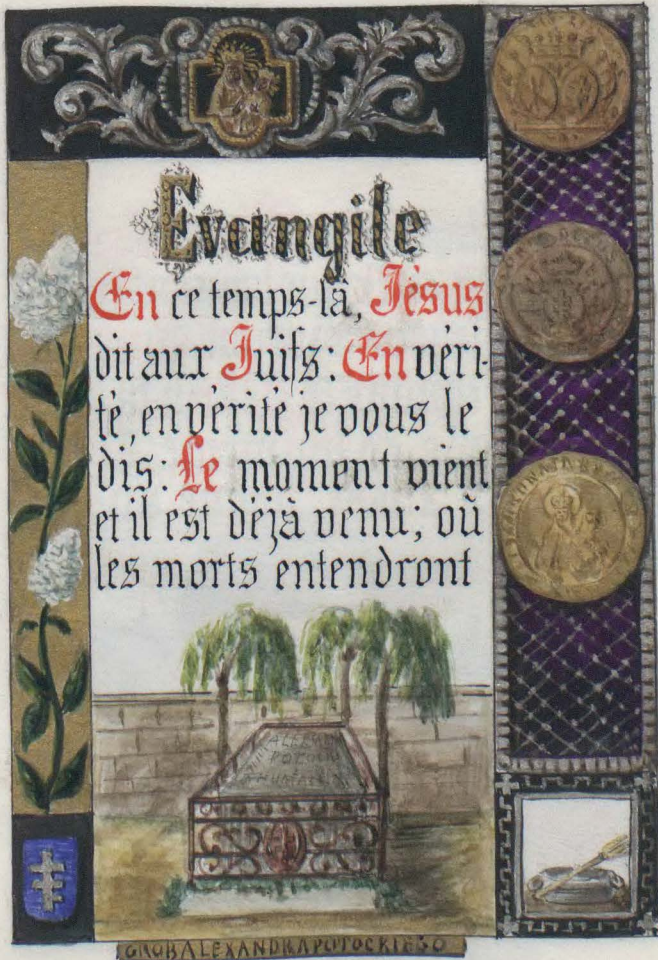 Evangile
En ce temps-là, Jésus
dit aux Juifs: En véri-
té, en vérité je vous le
dis: Le moment vient
et il est déjà venu; où
les morts entendront
GROB ALEXANDRA POTOCKIEGO